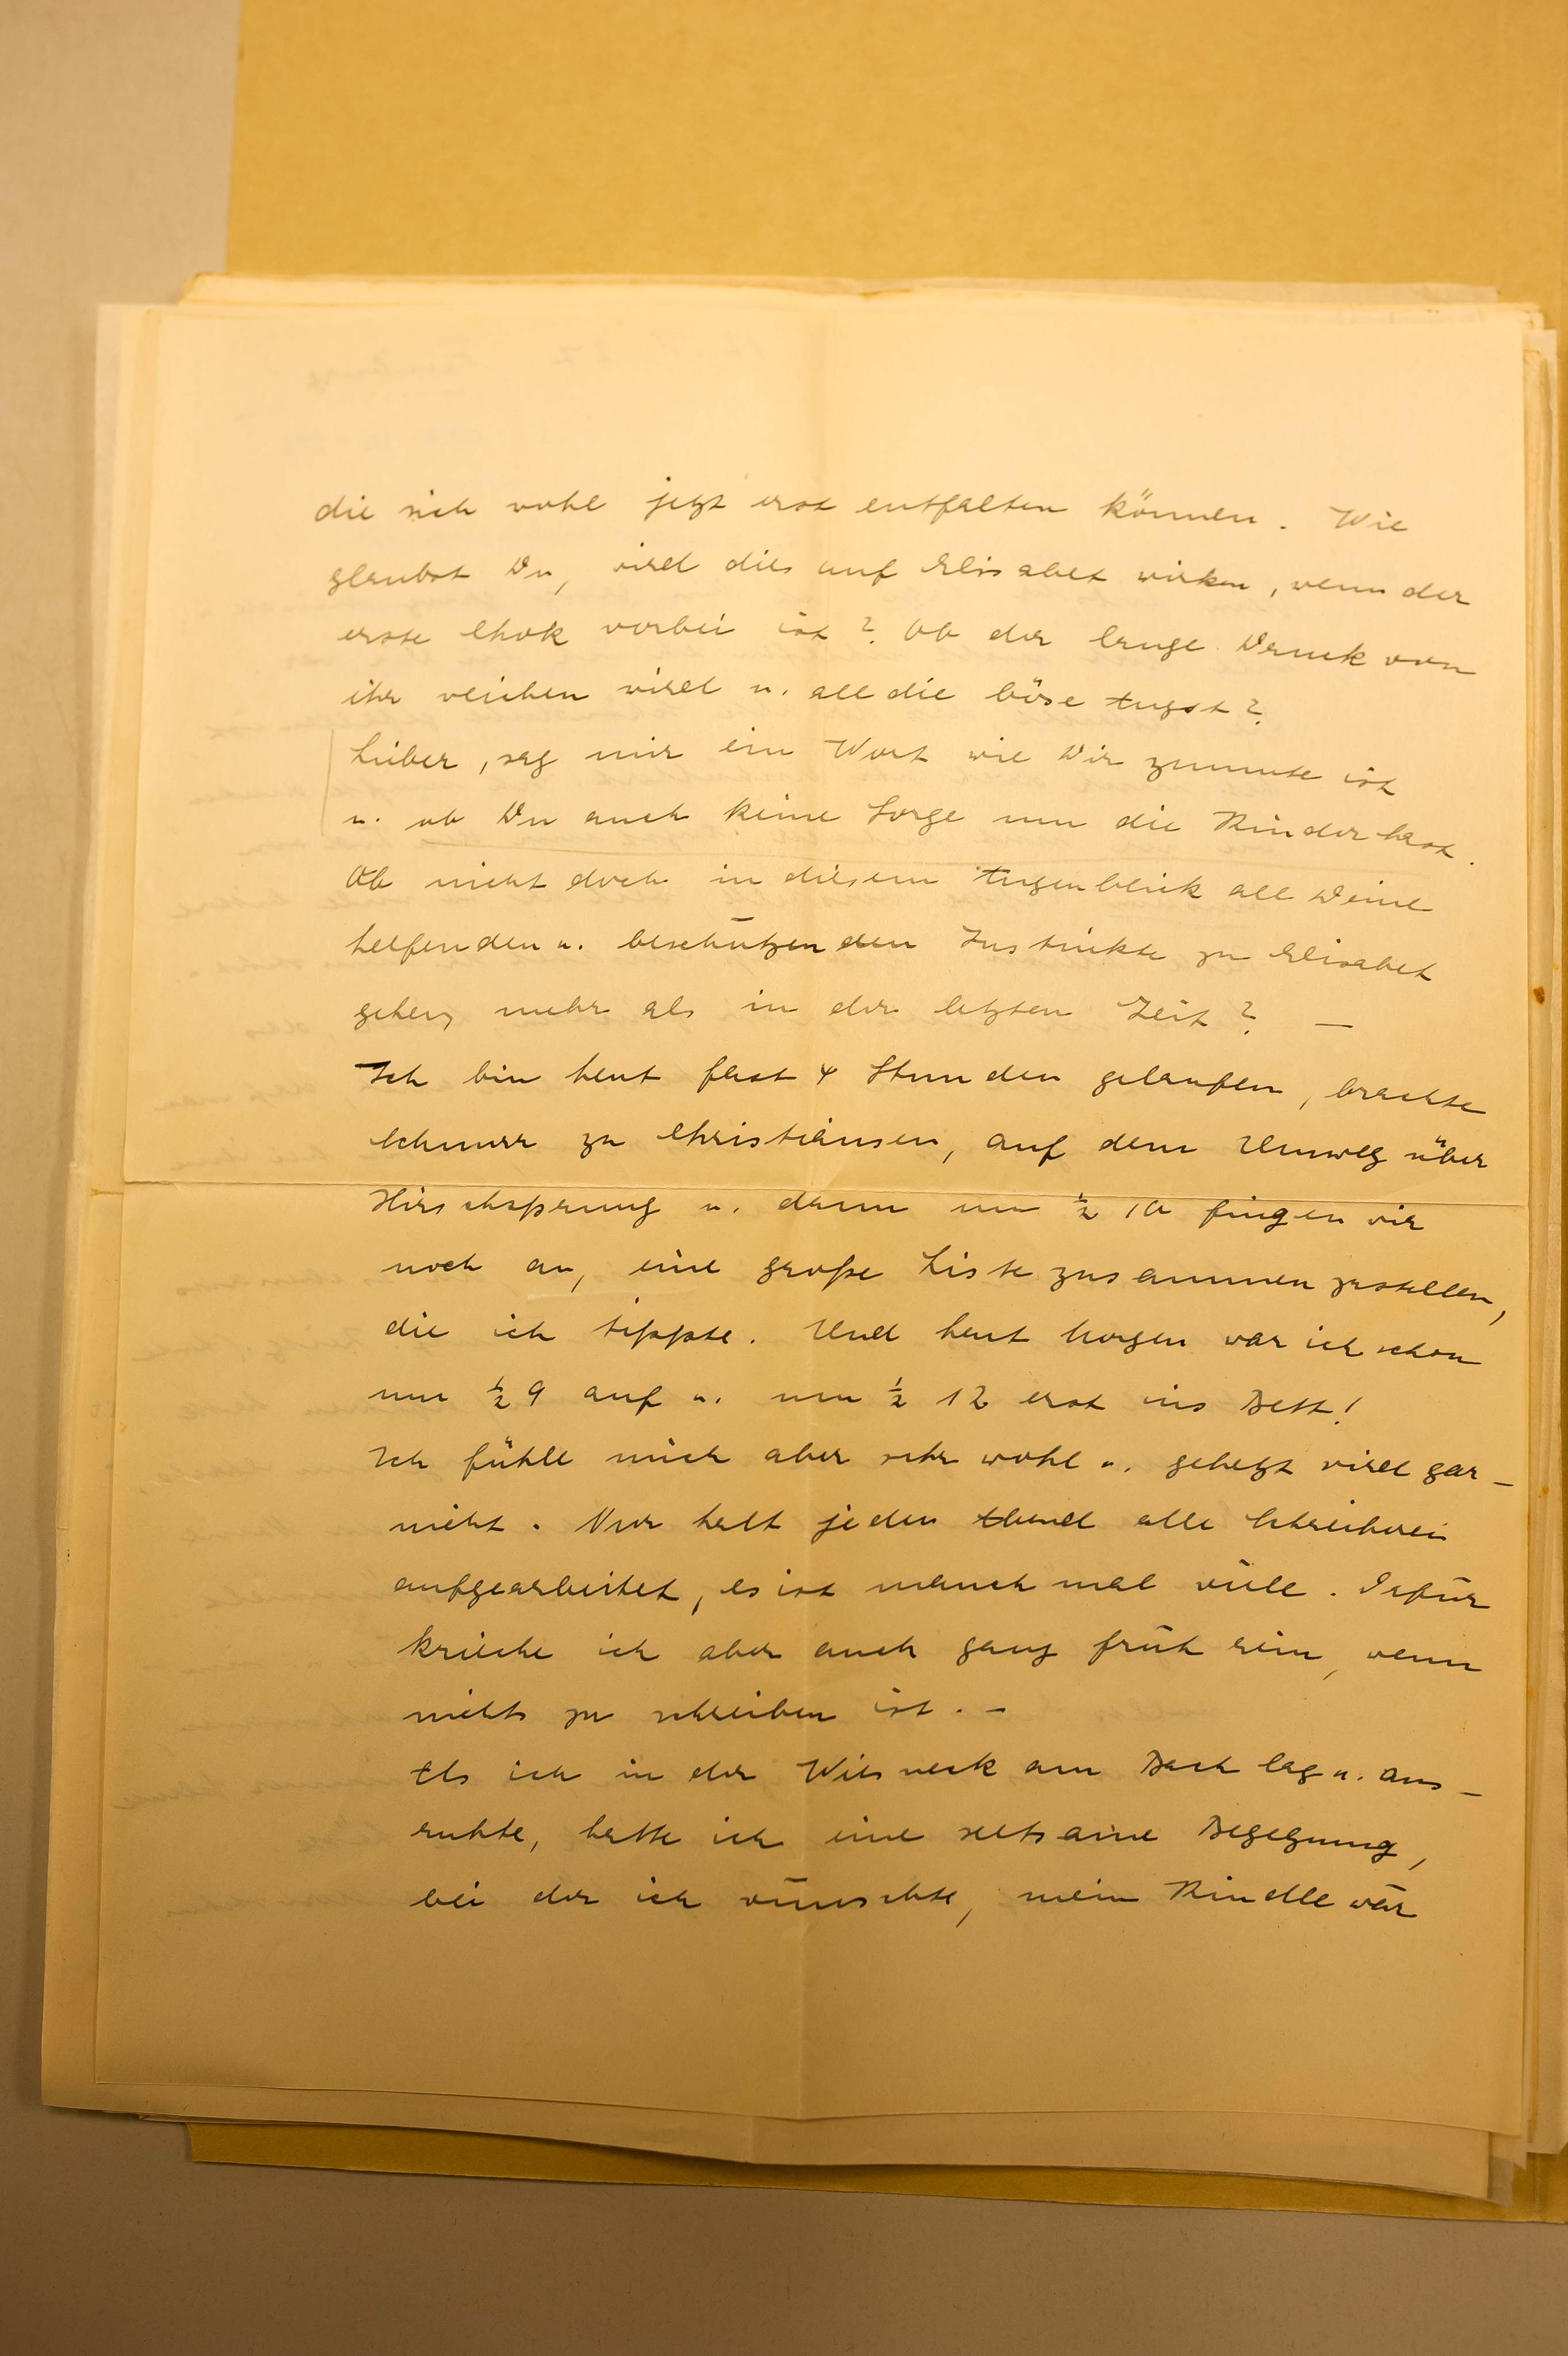 die sich wohl jetzt erst entfalten können. Wie
glaubst Du, wird dies auf Elisabet wirken, wenn der
erste Chok vorbei ist? Ob der lange Druck von
ihr weichen wird u. all die böse Angst?
Lieber, sag mir ein Wort wie Dir zumute ist
u. ob Du auch keine Sorge um die Kinder hast.
Ob nicht doch in diesem Augenblick all Deine
helfenden u. beschützenden Instinkte zu Elisabet
gehen, mehr als in der letzten Zeit? —
Ich bin heut fast 4 Stunden gelaufen, brachte
Schnurr zu Christiansen, auf dem Umweg über
Hirschsprung u. dann um ½ 10 fingen wir
noch an, eine große Liste zusammenzustellen,
die ich tippte. Und heut Morgen war ich schon
um ½ 9 auf u. um ½ 12 erst ins Bett!
Ich fühle mich aber sehr wohl u. gehetzt wird gar-
nicht. Nur halt jeden Abend alle Schreiberei
aufgearbeitet, es ist manchmal viele. Dafür
krieche ich aber auch ganz früh rein, wenn
nichts zu schreiben ist. –
Als ich in der Wiesneck am Bach lag u. aus-
ruhte, hatte ich eine seltsame Begegnung,
bei der ich wünschte, mein Kindle wär